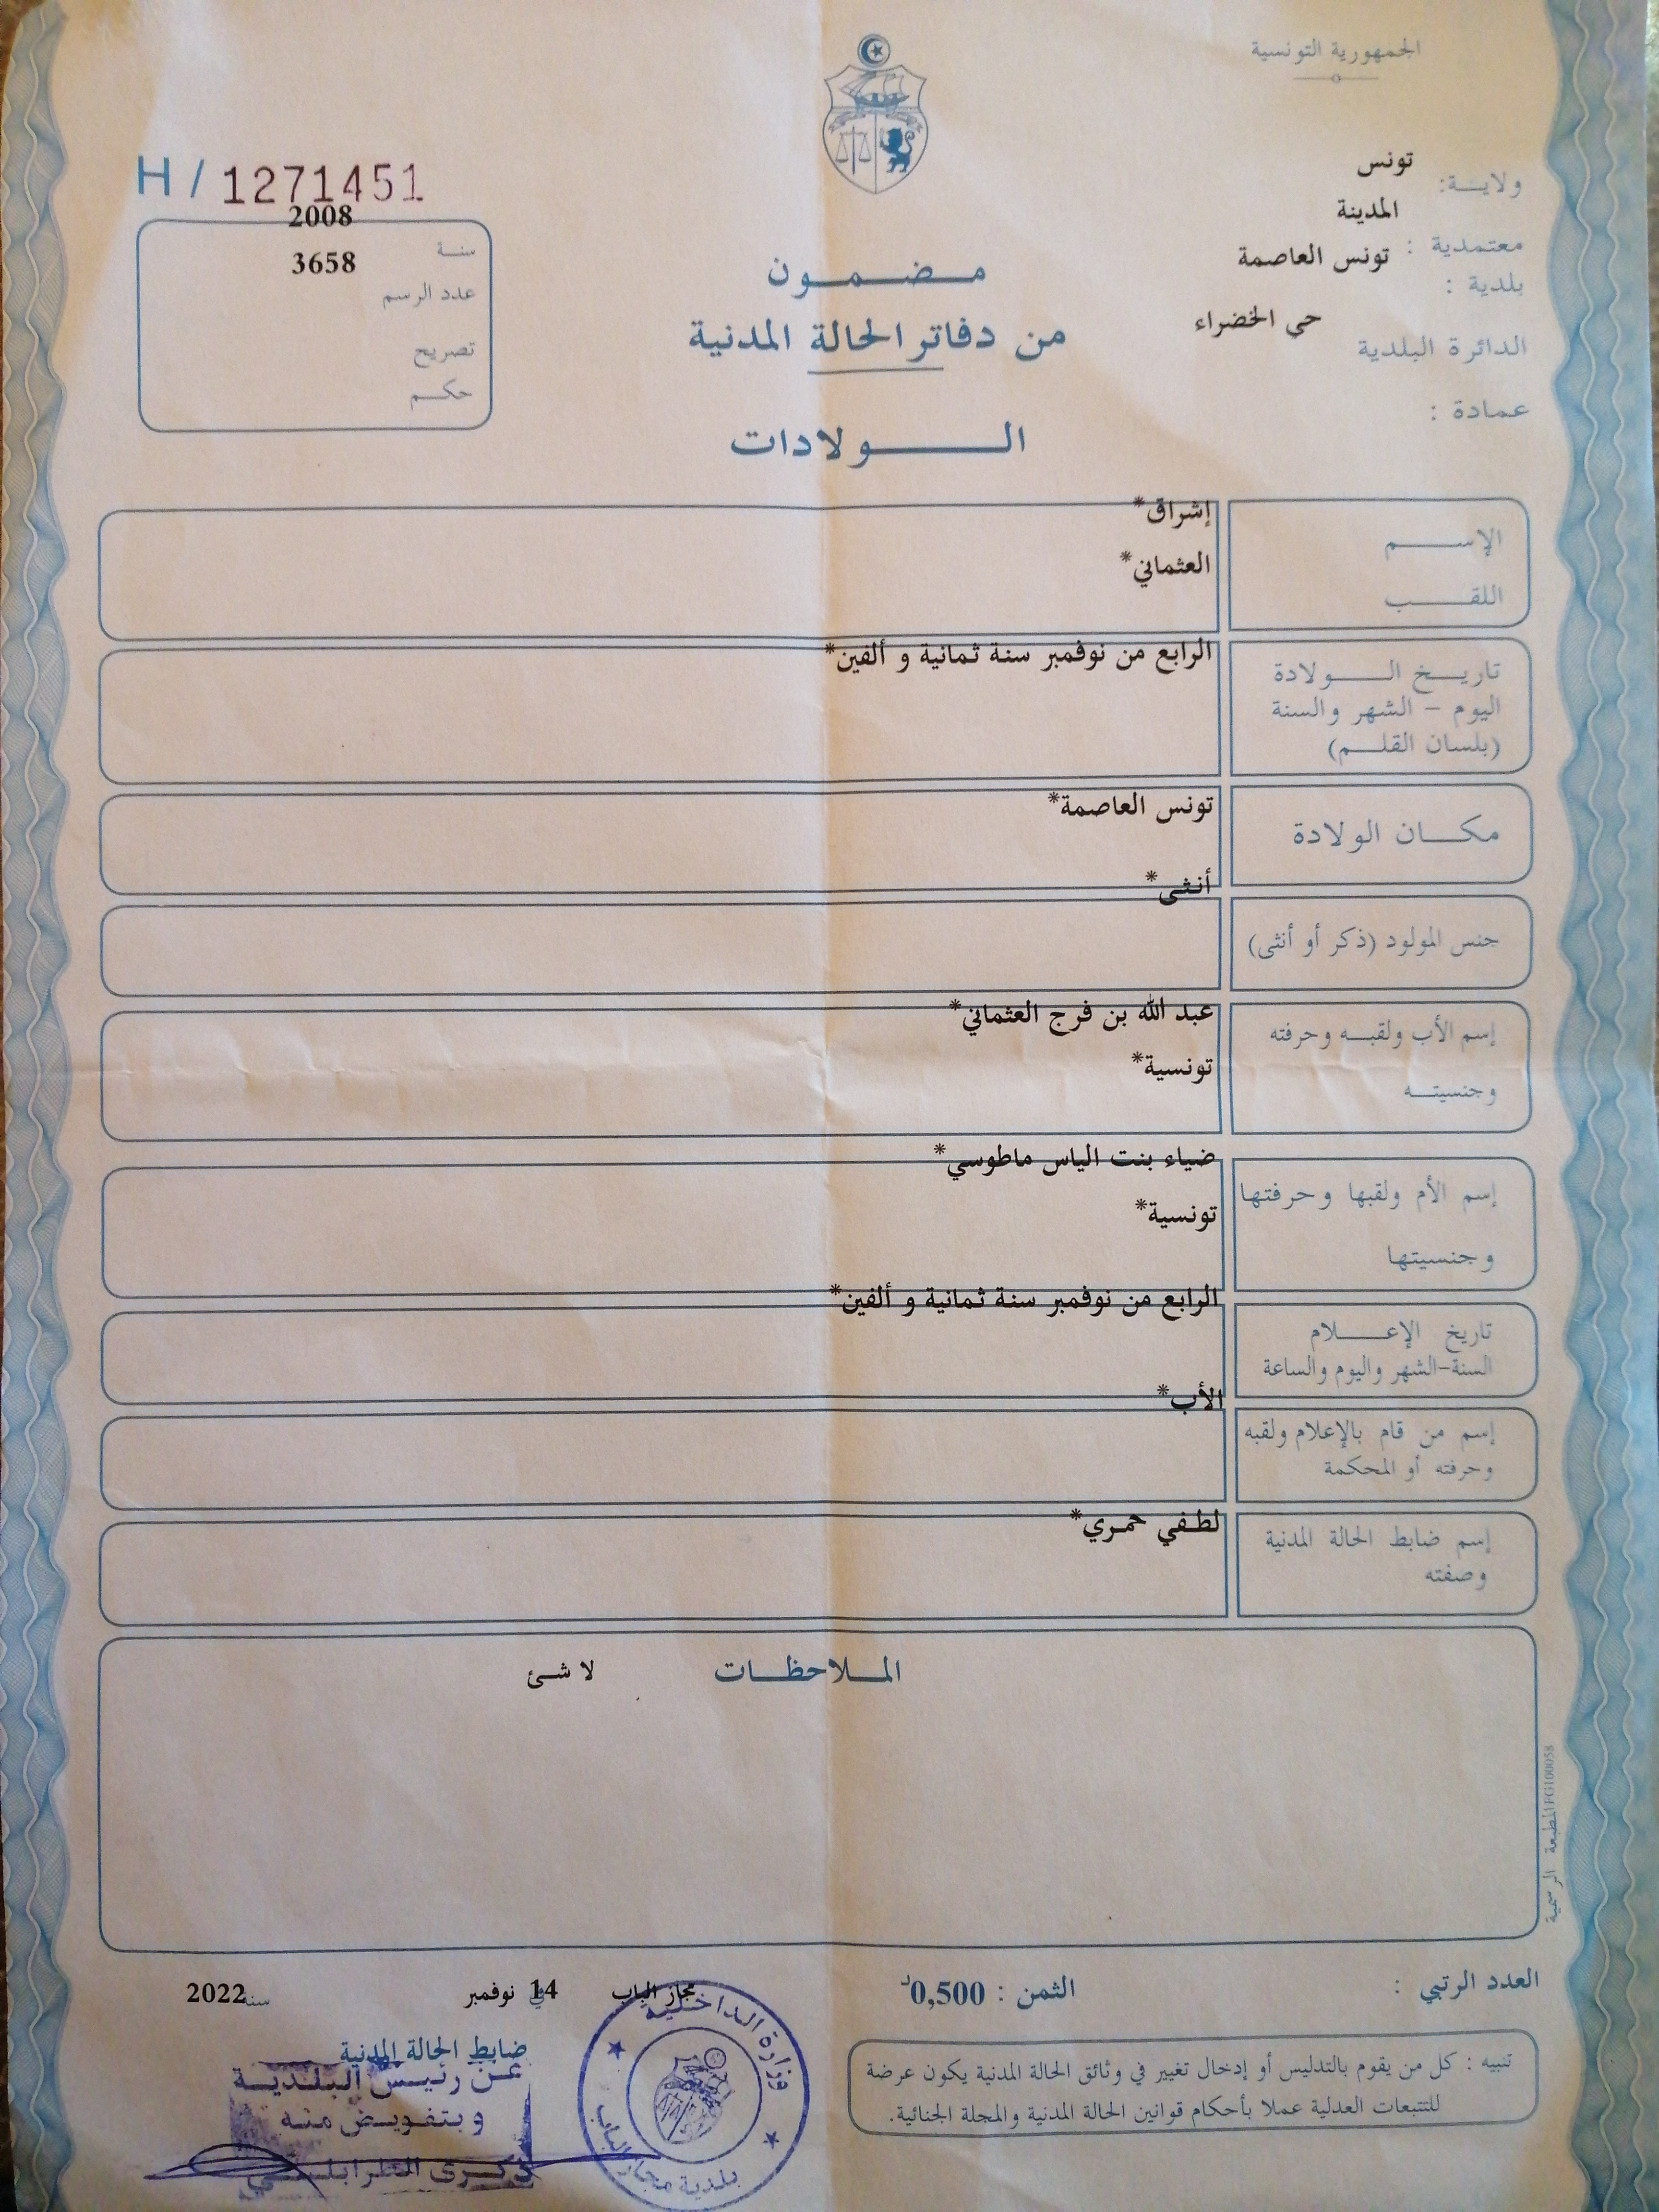 الجمهورية التونسية
ولايــة: تونس
معتمدية : المدينة
بلدية : تونس العاصمة
الدائرة البلدية حي الخضراء
عمادة :
H / 1271451
سنـة 2008
عدد الرسم 3658
تصريح
حكـم
مـضـمـون
من دفاتر الحالة المدنية
الــولادات
الإســم إشراق*
اللقــب العثماني*
تاريـخ الــولادة الرابع من نوفمبر سنة ثمانية و ألفين*
اليوم – الشهر والسنة
(بلسان القلـم)
مكـان الولادة تونس العاصمة*
جنس المولود (ذكر أو أنثى) أنثى*
إسم الأب ولقبـه وحرفته عبد الله بن فرج العثماني*
وجنسيتـه تونسية*
إسم الأم ولقبها وحرفتها ضياء بنت الياس ماطوسي*
وجنسيتها تونسية*
تاريخ الإعـلام الرابع من نوفمبر سنة ثمانية و ألفين*
السنة-الشهر واليوم والساعة
إسم من قام بالإعلام ولقبه الأب*
وحرفته أو المحكمة
إسم ضابط الحالة المدنية لطفي حمري*
وصفته
المـلاحظـات لا شئ
المطبعة الرسمية FG100058
العدد الرتبي :
الثمن : 0,500د
مجاز الباب في 14 نوفمبر سنة 2022
ضابط الحالة المدنية
عـن رئيـس البـلـديـة
وبتفويـض منـه
ذكـرى الطرابلسـي
وزارة الـداخـلـيـة
بلدية مجاز الباب
تنبيه : كل من يقوم بالتدليس أو إدخال تغيير في وثائق الحالة المدنية يكون عرضة
للتتبعات العدلية عملا بأحكام قوانين الحالة المدنية والمجلة الجنائية.